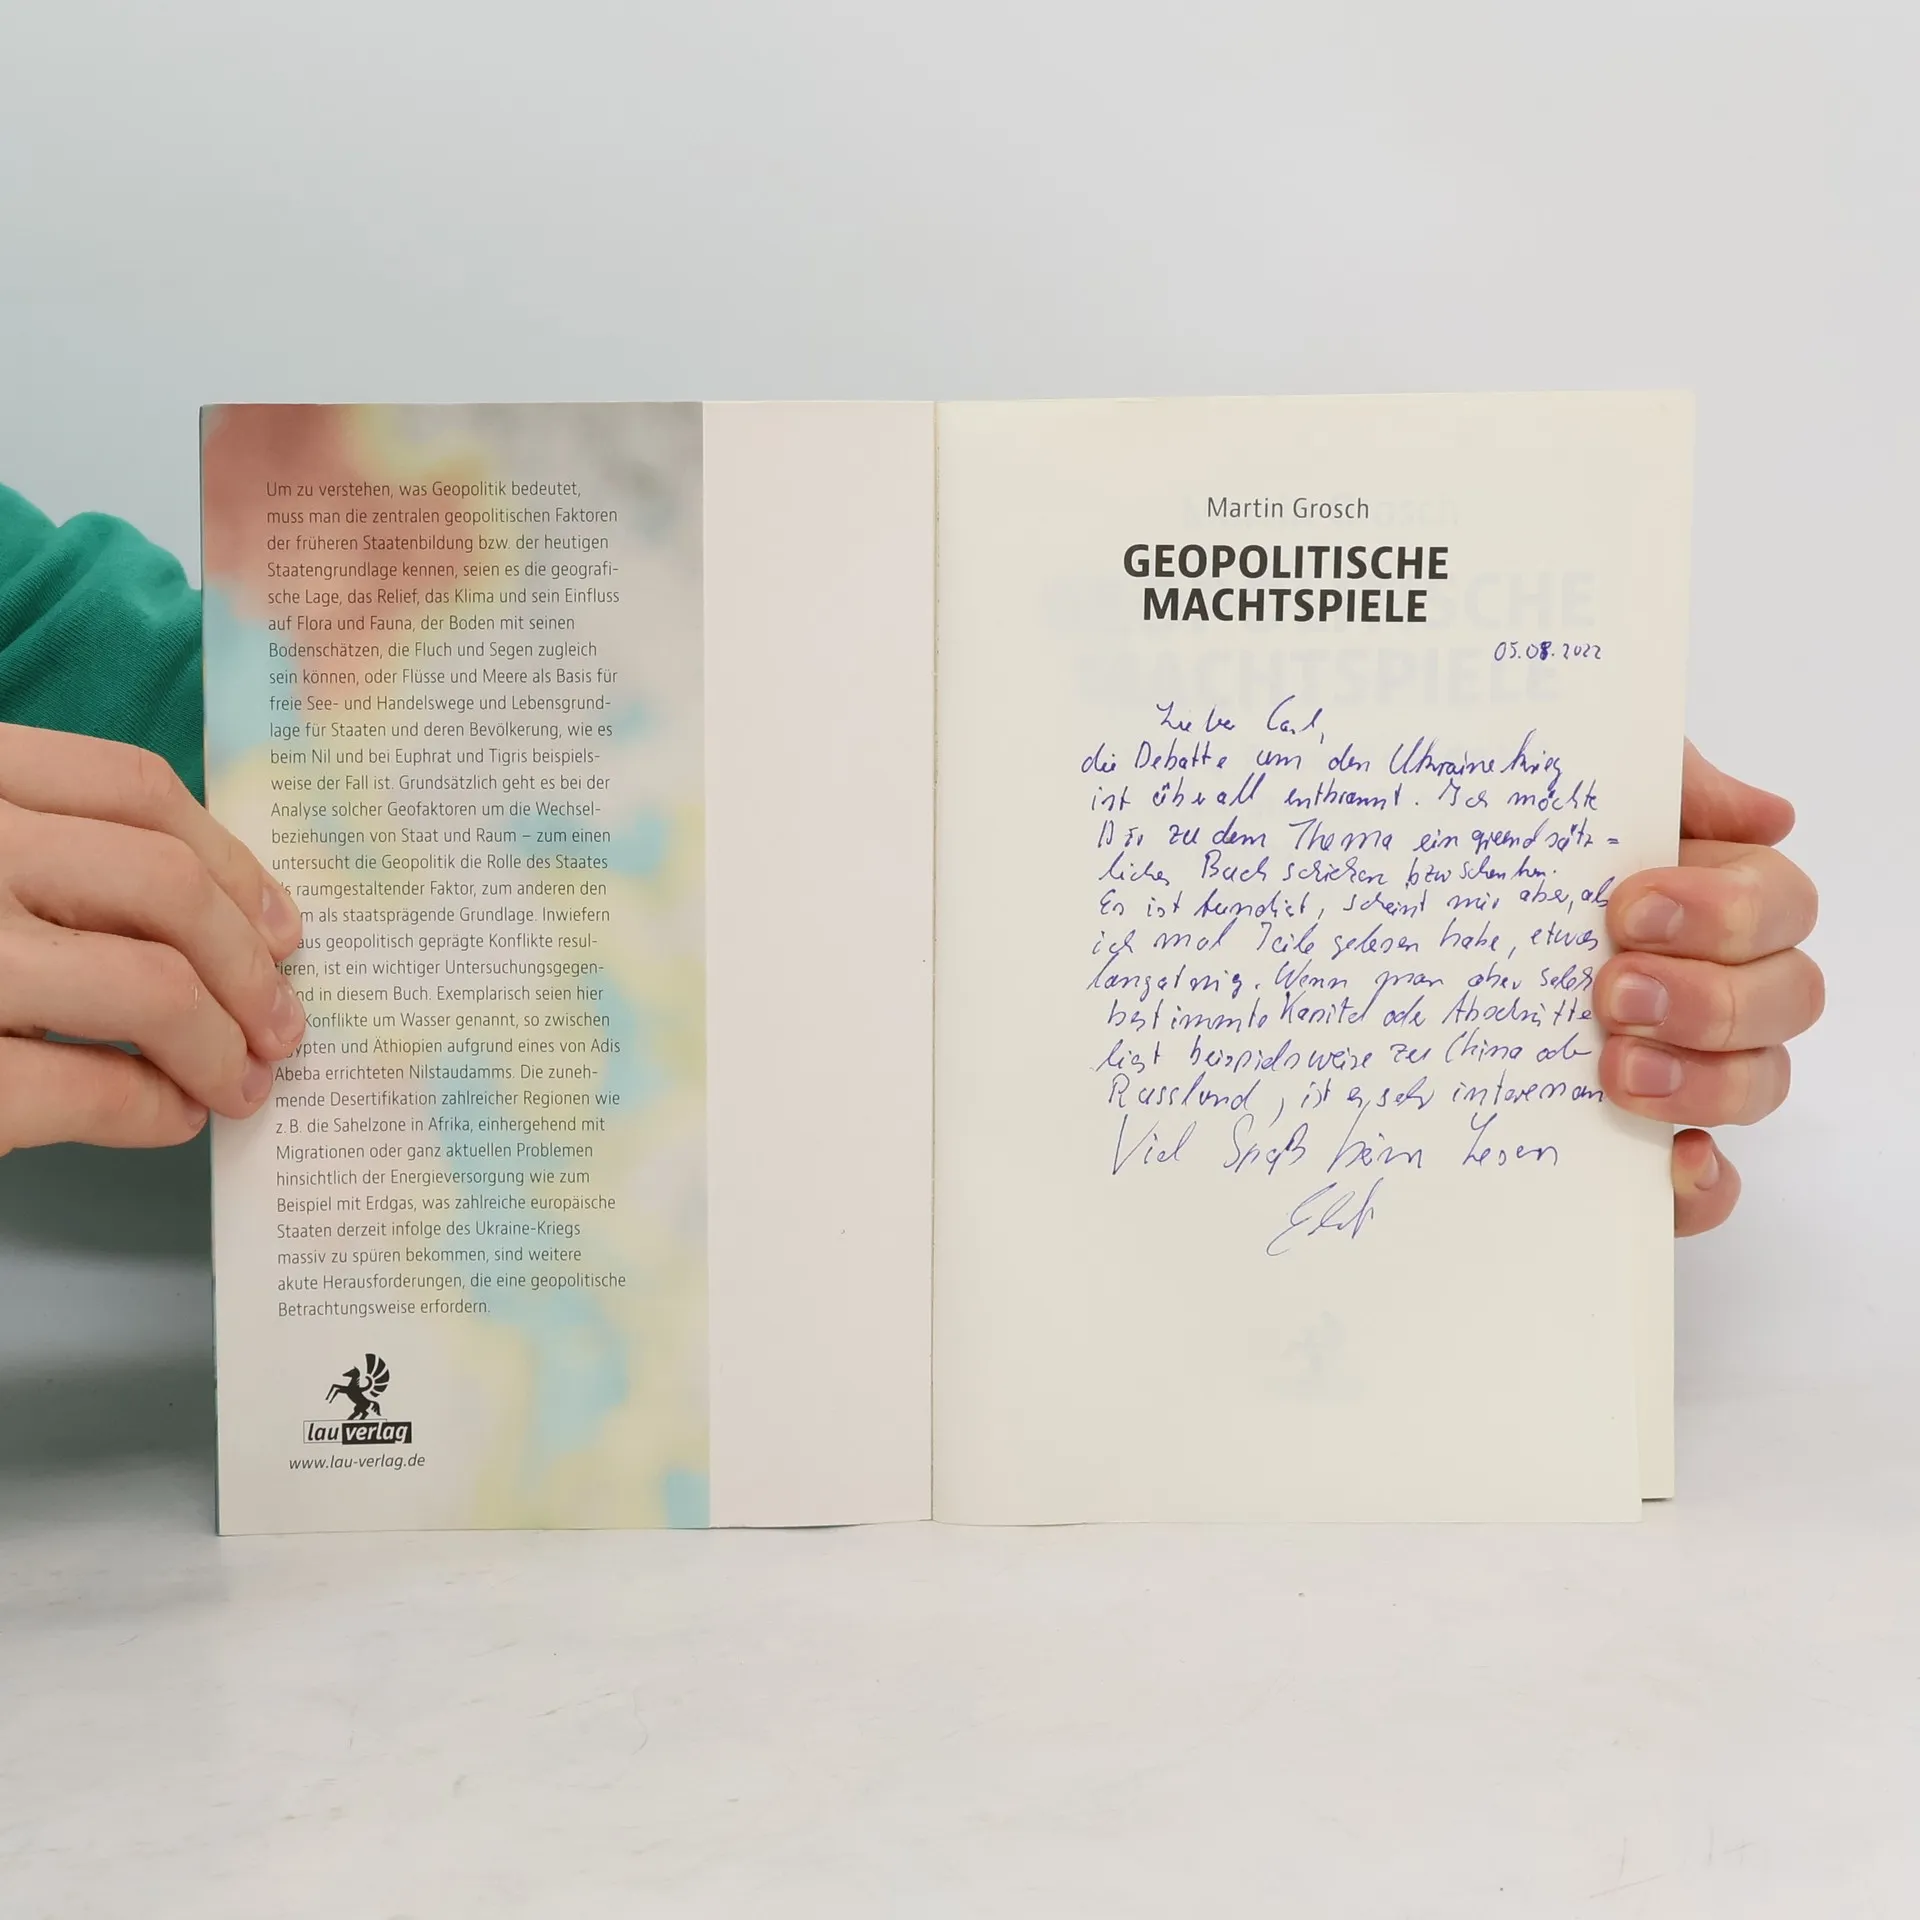 Um zu verstehen, was Geopolitik bedeutet,
muss man die zentralen geopolitischen Faktoren
der früheren Staatenbildung bzw. der heutigen
Staatengrundlage kennen, seien es die geografi-
sche Lage, das Relief, das Klima und sein Einfluss
auf Flora und Fauna, der Boden mit seinen
Bodenschätzen, die Fluch und Segen zugleich
sein können, oder Flüsse und Meere als Basis für
freie See- und Handelswege und Lebensgrund-
lage für Staaten und deren Bevölkerung, wie es
beim Nil und bei Euphrat und Tigris beispiels-
weise der Fall ist. Grundsätzlich geht es bei der
Analyse solcher Geofaktoren um die Wechsel-
beziehungen von Staat und Raum – zum einen
untersucht die Geopolitik die Rolle des Staates
raumgestaltender Faktor, zum anderen den
als staatsprägende Grundlage. Inwiefern
aus geopolitisch geprägte Konflikte resul-
tieren, ist ein wichtiger Untersuchungsgegen-
nd in diesem Buch. Exemplarisch seien hier
Konflikte um Wasser genannt, so zwischen
ypten und Äthiopien aufgrund eines von Adis
Abeba errichteten Nilstaudamms. Die zuneh-
mende Desertifikation zahlreicher Regionen wie
z. B. die Sahelzone in Afrika, einhergehend mit
Migrationen oder ganz aktuellen Problemen
hinsichtlich der Energieversorgung wie zum
Beispiel mit Erdgas, was zahlreiche europäische
Staaten derzeit infolge des Ukraine-Kriegs
massiv zu spüren bekommen, sind weitere
akute Herausforderungen, die eine geopolitische
Betrachtungsweise erfordern.
lau verlag
www.lau-verlag.de
Martin Grosch
GEOPOLITISCHE
MACHTSPIELE
05.08.2022
Lieber Carl,
die Debatte um den Ukrainekrieg
ist überall entbrannt. Ich möchte
Dir zu dem Thema ein grundsätz=
liches Buch schicken bzw schenken.
Es ist fundiert, scheint mir aber, als
ich mal Teile gelesen habe, etwas
langatmig. Wenn man aber
bestimmte Kapitel oder Abschnitte
liest beispielsweise zu China oder
Russland, ist es sehr interessan
Viel Spaß beim Lesen